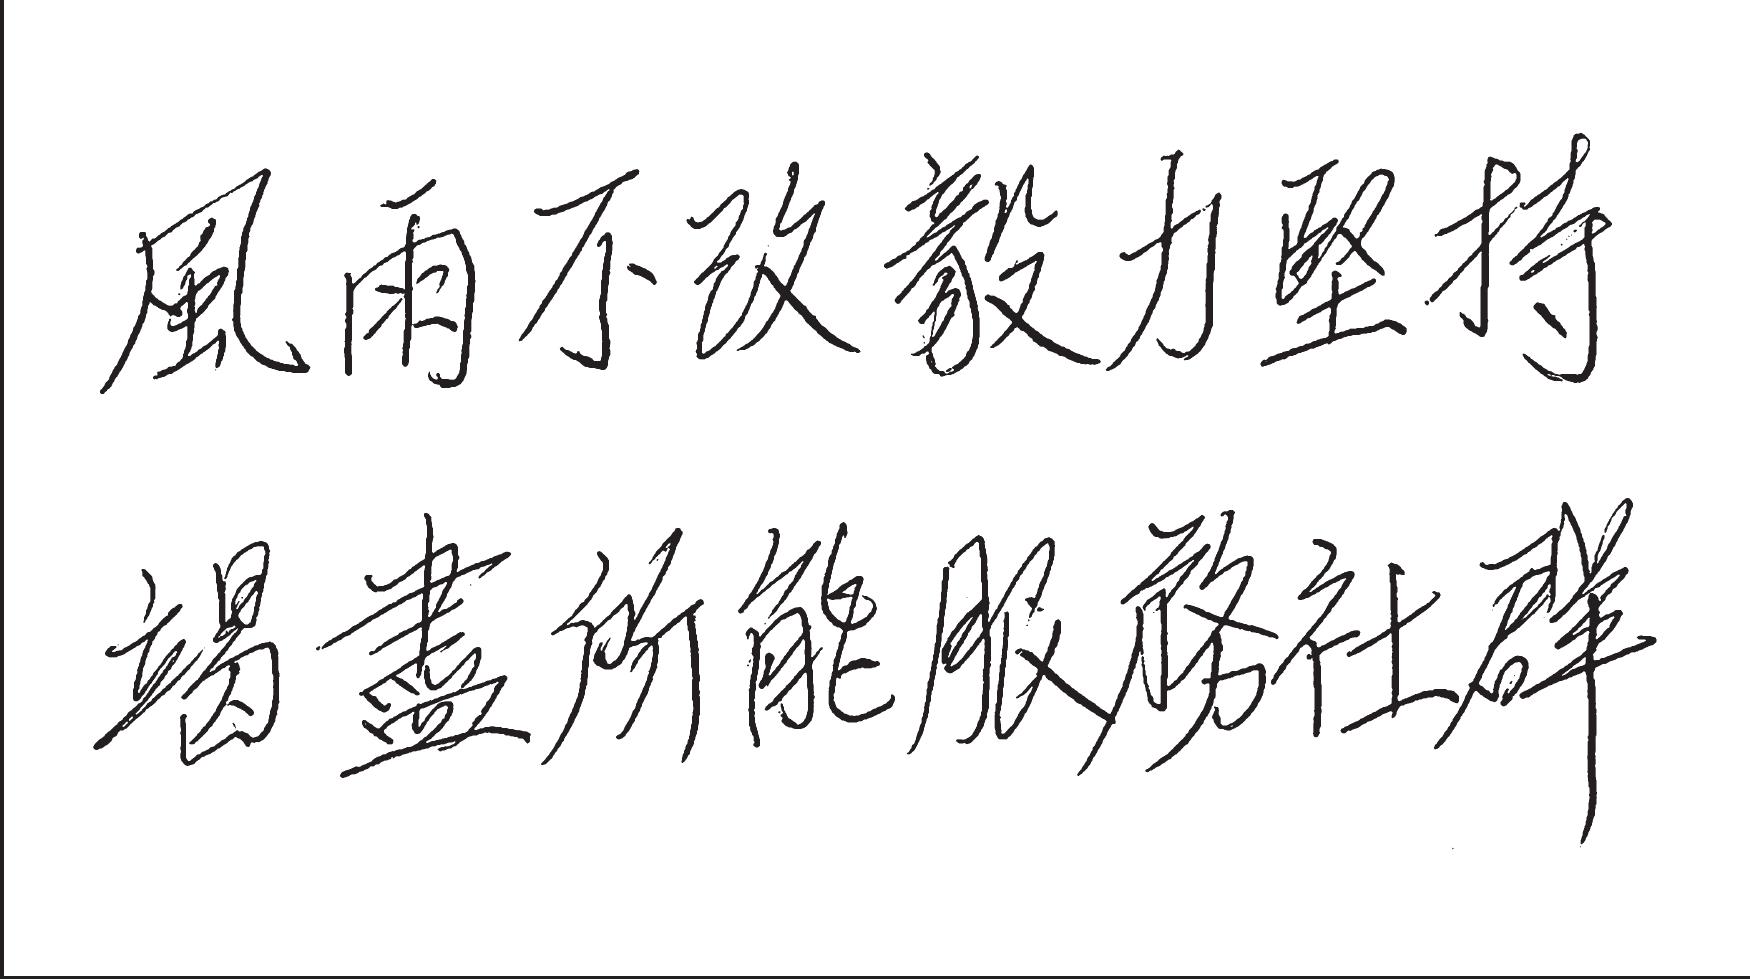 風雨不改毅力堅持
竭盡所能服務社群